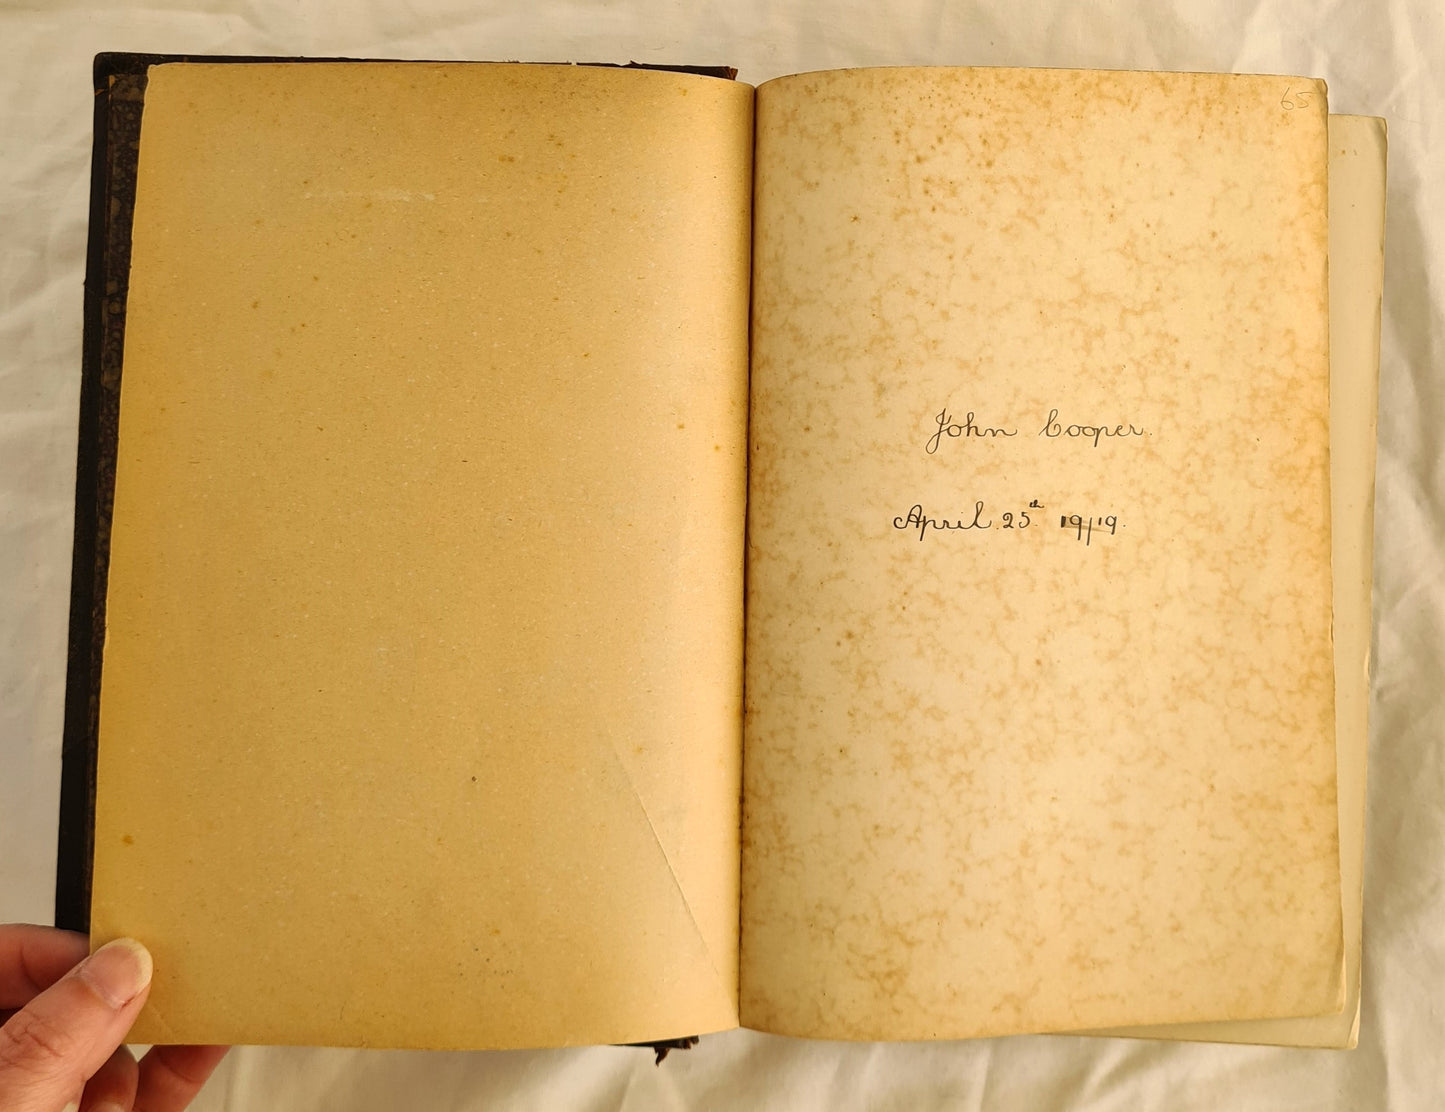 65
John Cooper.
April. 25th 19/19.